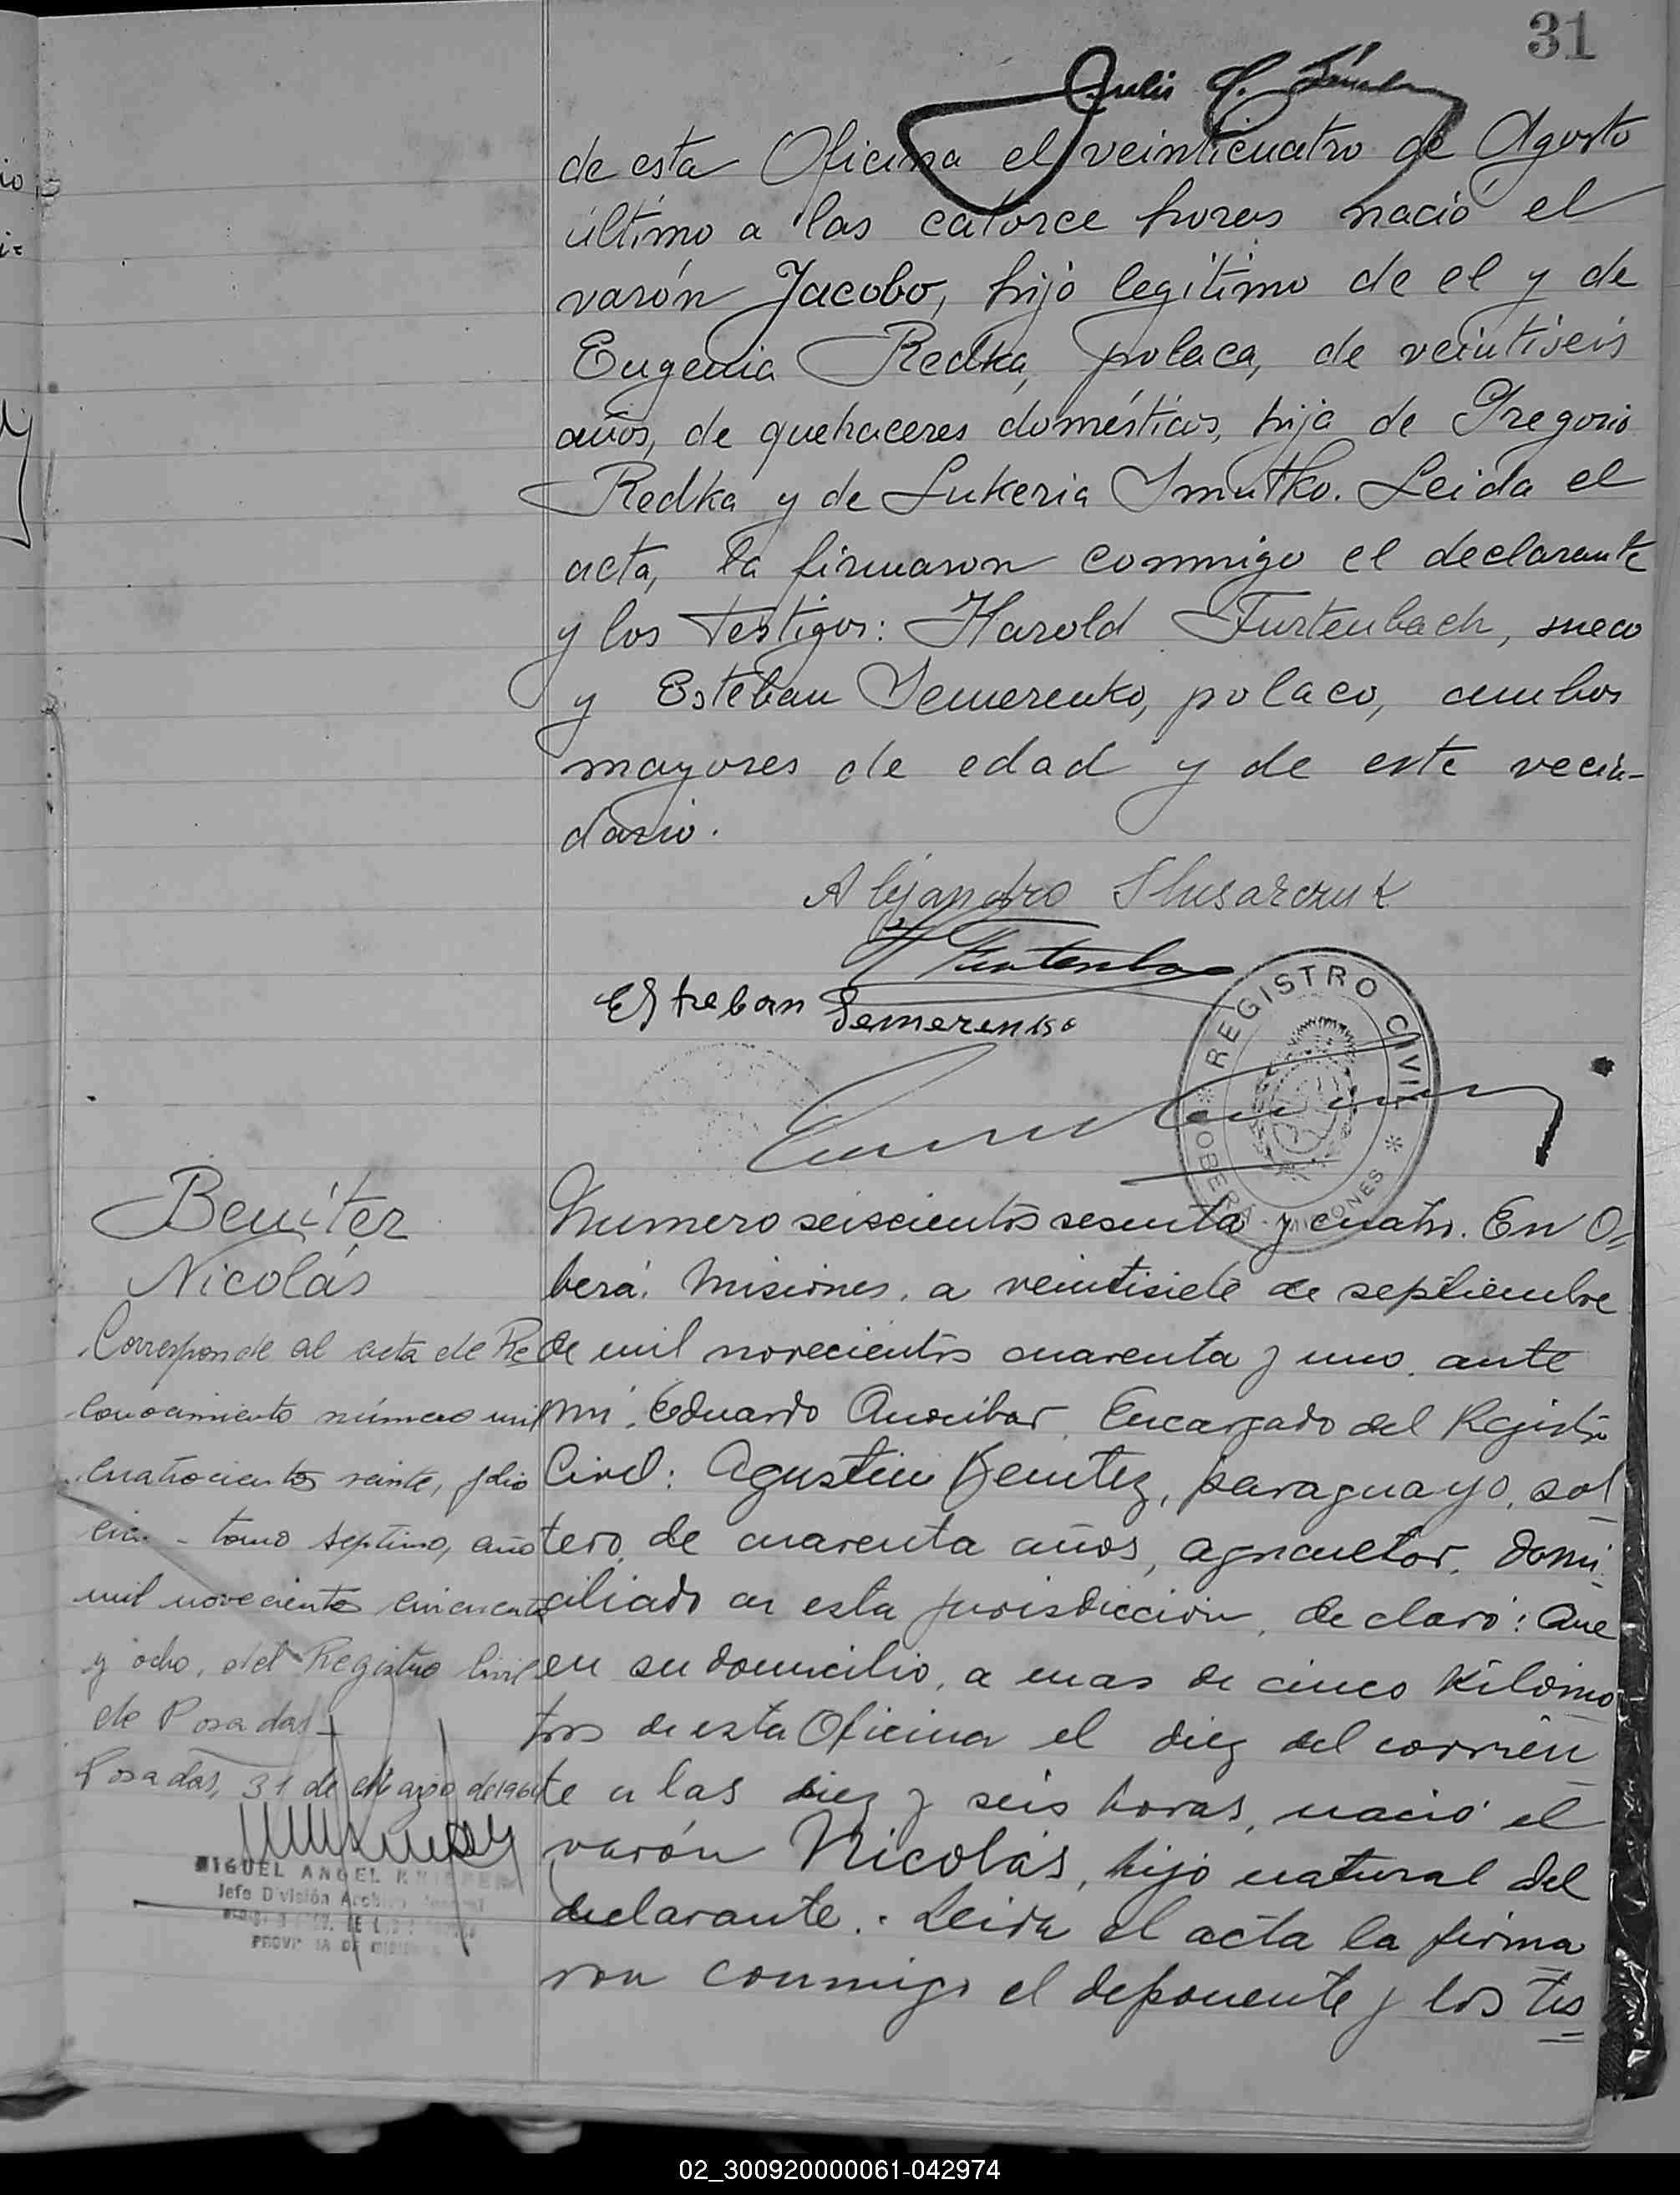 31
de esta Oficina el veinticuatro de Agosto
último a las catorce horas nació el
varón Jacobo, hijo legítimo de el y de
Eugenia Redka, polaca, de veintiseis
años, de quehaceres domésticos, hija de Gregorio
Redka y de Lukeria Smutko. Leida el
acta, la firmaron conmigo el declarante
y los testigos: Harold Furtenbach, sueco
y Esteban Semerenko, polaco, ambos
mayores de edad y de este vecin-
dario.
Alejandro Slusarczuk
Estreban Semerenko
REGISTRO CIVIL
OBERA - MISIONES
Benítez
Nicolás
Corresponde al acta de Re
conocimiento número mil
cuatrocientos veinte, folio
tomo septimo, año
mil novecientos cincuenta
y ocho, del Registro Civil
de Posadas
Posadas, 31 de de 196
MIGUEL ANGEL
Jefe División
PROVINCIA DE
Numero seiscientos sesenta y cuatro. En O=
berá. Misiones, a veintisiete de septiembre
de mil novecientos cuarenta y uno, ante
mi, Eduardo Encargado del Registro
Civil: Agustin Benitez, paraguayo, sol
tero, de cuarenta años, agricultor, domi
ciliado en esta jurisdiccion, declaró: Que
en su domicilio, a mas de cinco kilome
tros de esta Oficina el diez del corrien
te a las diez y seis horas, nació el
varón Nicolás, hijo natural del
declarante.- Leida el acta la firma
ron conmigo el deponente y los tes
02_300920000061-042974